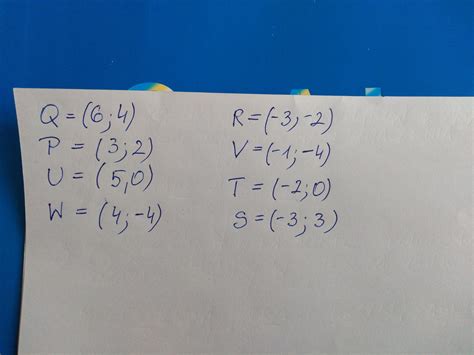 Q = (6; 4)
P = (3; 2)
U = (5,0)
W = (4; -4)
R = (-3; -2)
V = (-1; -4)
T = (-2; 0)
S = (-3; 3)